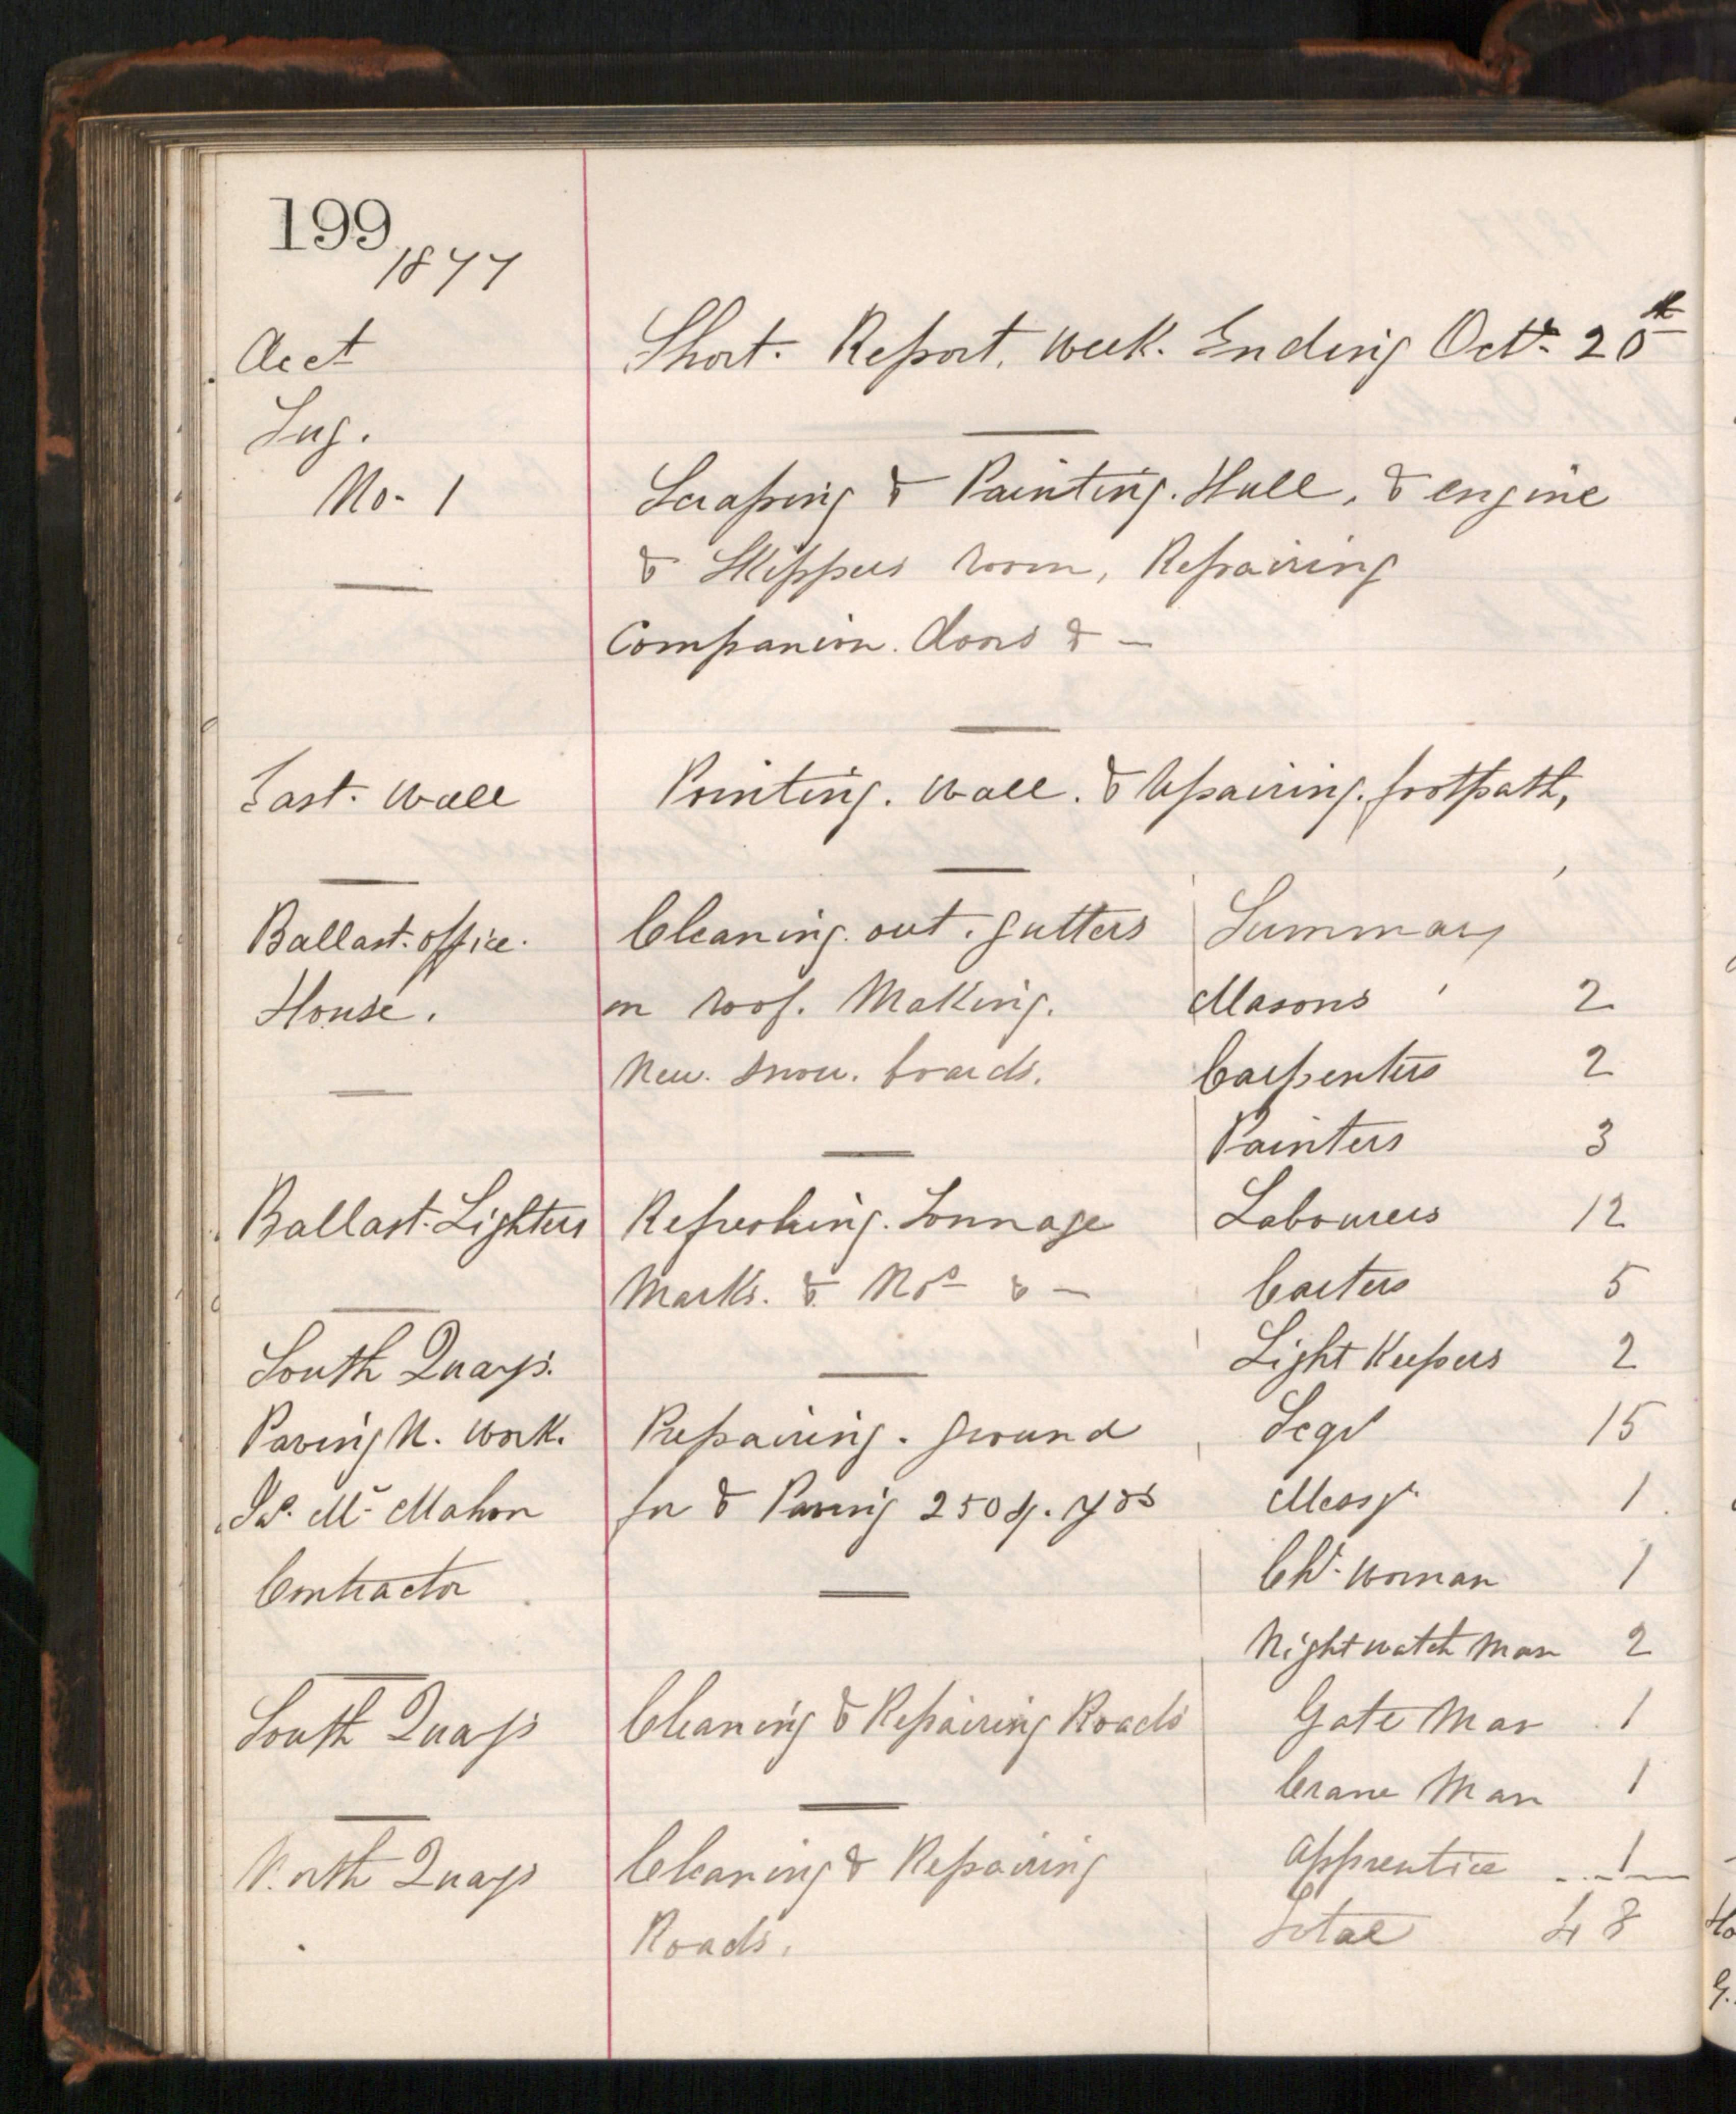 199
1877
Acct
Short. Report. Week. Ending Octr. 20th
Tug.
No. 1
Scraping & Painting. Hull, & engine
& Skippers room, Repairing
Companion. doors & —
East. Wall
Pointing. Wall. & repairing. footpath,
Ballast. office.
House.
Cleaning. out. gutters
on roof. Making.
New. snow. boards.
Ballast. Lighters
Refreshing. Tonnage
Marks. & Nos & —
South Quays.
Paving N. Work.
Js. Mc Mahon
Contractor
Repairing. ground
for & Paving 250 sq. yds
South Quays
Cleaning & Repairing Roads
North Quays
Cleaning & Repairing
Roads.
Summary
Masons 2
Carpenters 2
Painters 3
Labourers 12
Carters 5
Light Keepers 2
15
Messr 1
Chr. Woman 1
Night watch Man 2
Gate Man 1
Crane Man 1
Apprentice 1
Total 48